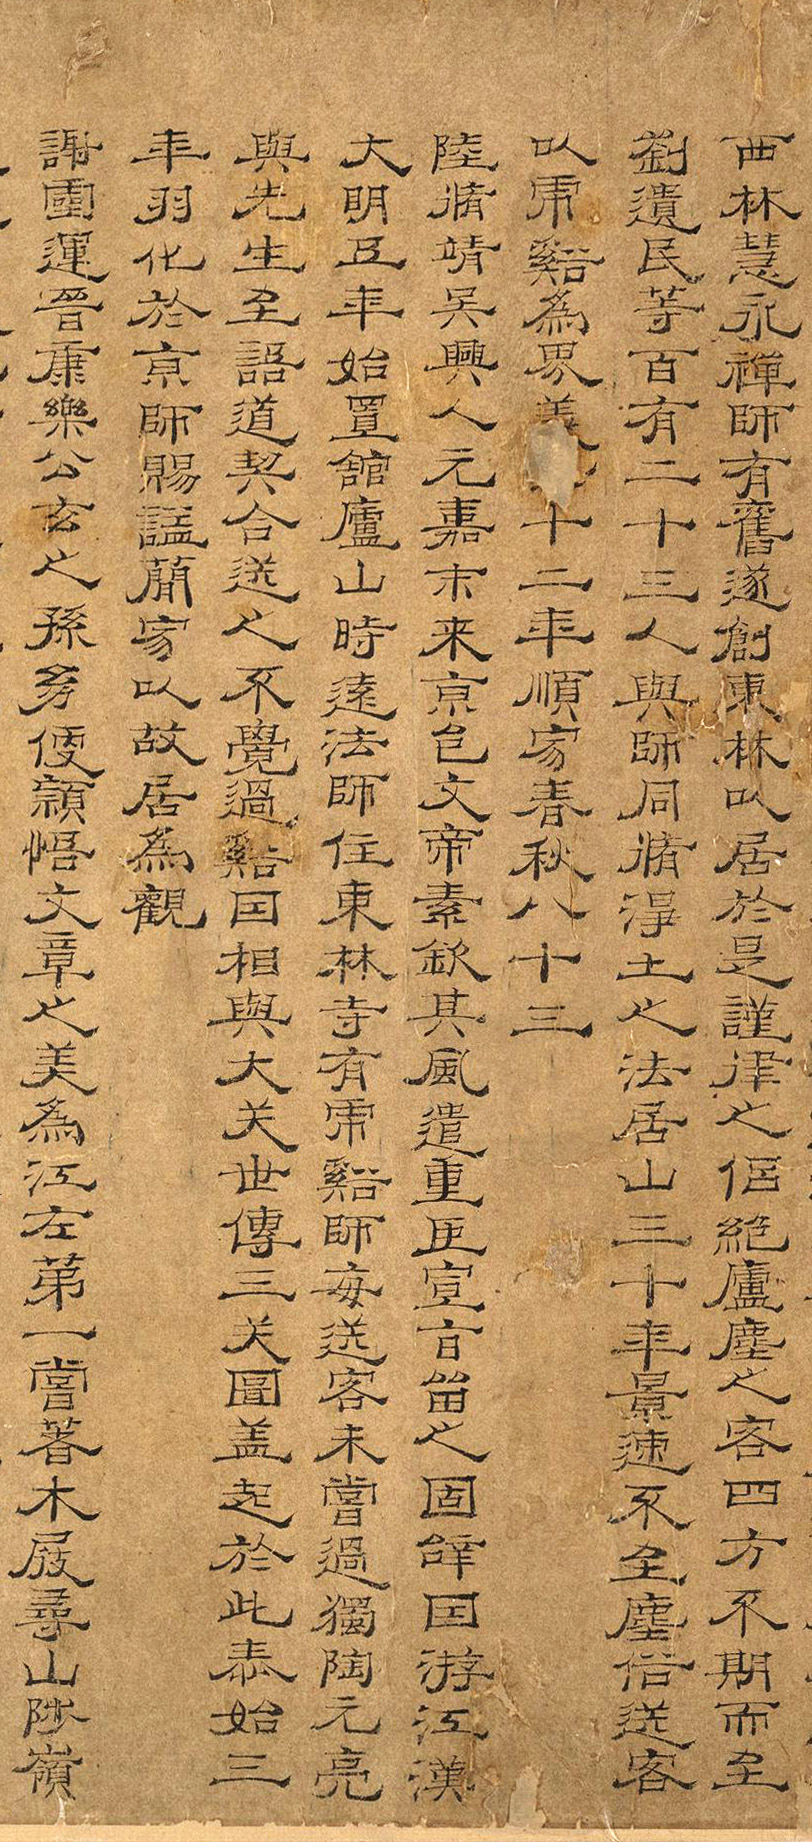 西林慧永禪師有舊遂創東林以居於是謹律之侶絕塵之客四方不期而至
劉遺民等百有二十三人與師同脩淨土之法居山三十年景迹不至塵俗送客
以虎谿為界義十二年順寂春秋八十三
陸脩靖吳興人元嘉末来京邑文帝素欽其風遣重臣宣旨留之固辭因游江漢
大明五年始置館廬山時遠法師住東林寺有虎谿師每送客未嘗過獨陶元亮
與先生至語道契合送之不覺過谿因相與大笑世傳三笑圖蓋起於此泰始三
年羽化於京師賜謚簡寂以故居為觀
謝靈運晉康樂公玄之孫幼便穎悟文章之美為江左第一嘗著木屐尋山陟嶺